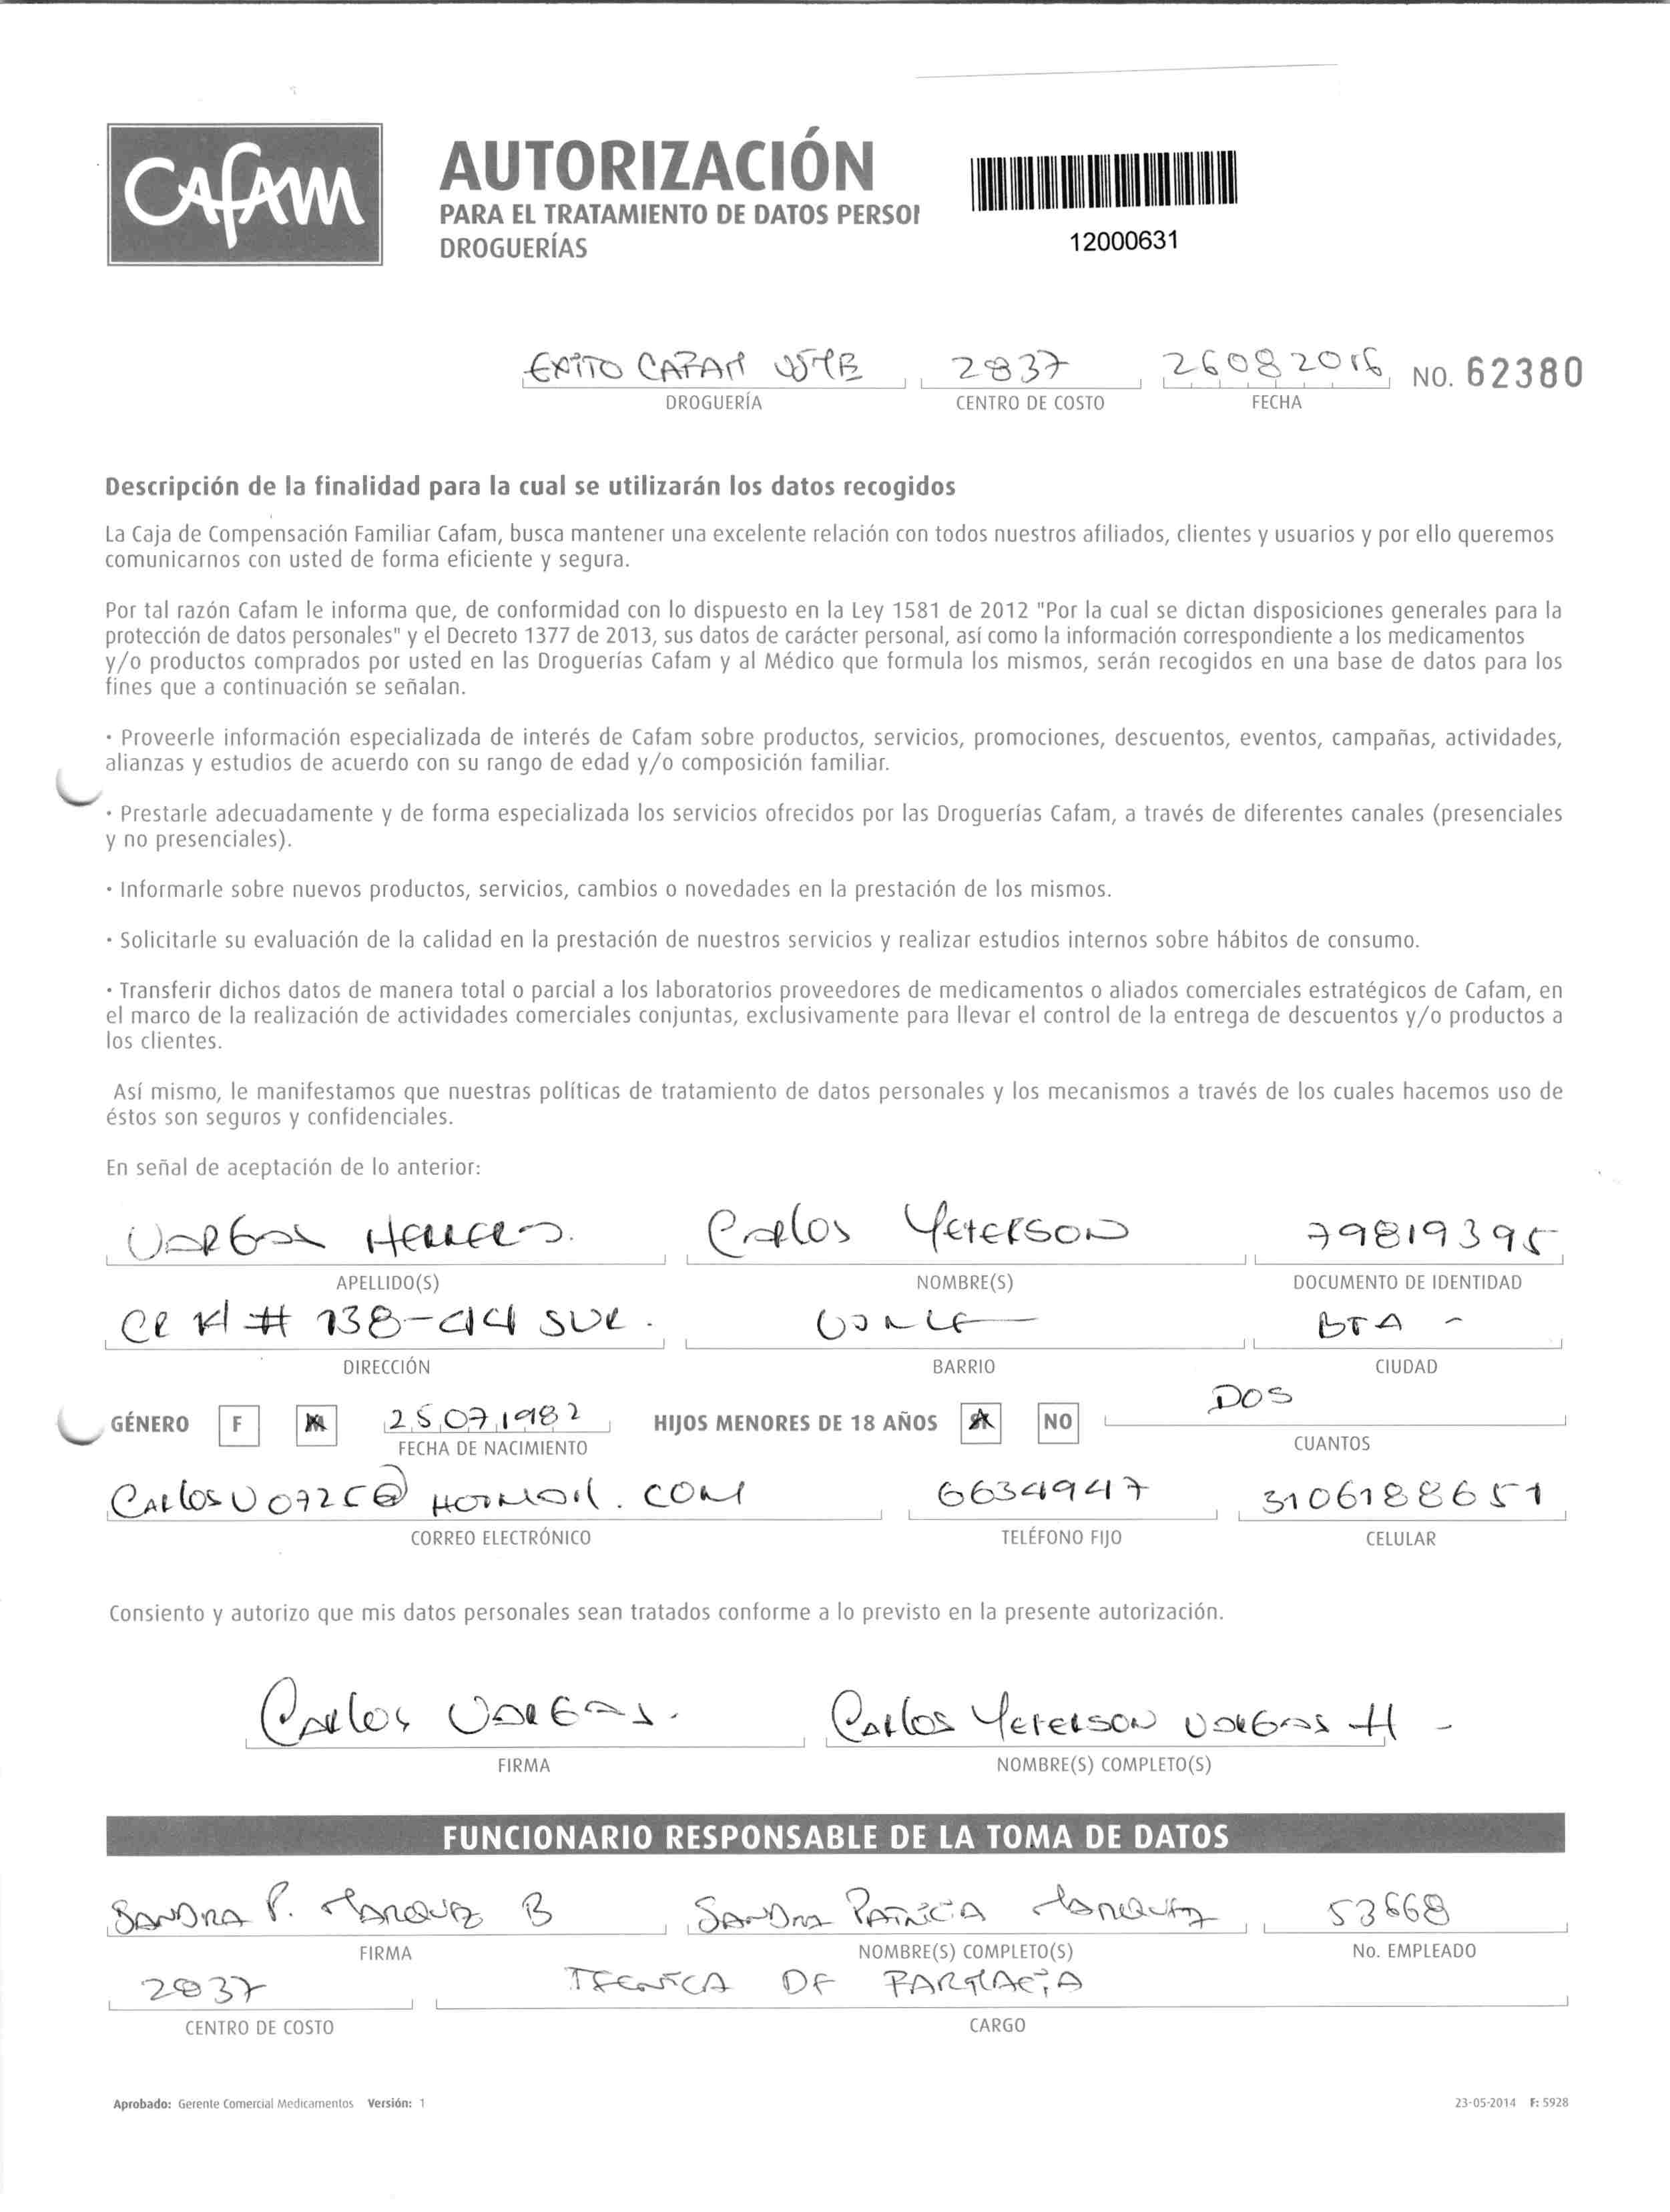 Cafam
AUTORIZACIÓN
PARA EL TRATAMIENTO DE DATOS PERSO
DROGUERÍAS
12000631
EXITO CAFAM 2837 26082016 NO. 62380
DROGUERÍA CENTRO DE COSTO FECHA
Descripción de la finalidad para la cual se utilizarán los datos recogidos
La Caja de Compensación Familiar Cafam, busca mantener una excelente relación con todos nuestros afiliados, clientes y usuarios y por ello queremos
comunicarnos con usted de forma eficiente y segura.
Por tal razón Cafam le informa que, de conformidad con lo dispuesto en la Ley 1581 de 2012 "Por la cual se dictan disposiciones generales para la
protección de datos personales" y el Decreto 1377 de 2013, sus datos de carácter personal, así como la información correspondiente a los medicamentos
y/o productos comprados por usted en las Droguerías Cafam y al Médico que formula los mismos, serán recogidos en una base de datos para los
fines que a continuación se señalan.
· Proveerle información especializada de interés de Cafam sobre productos, servicios, promociones, descuentos, eventos, campañas, actividades,
alianzas y estudios de acuerdo con su rango de edad y/o composición familiar.
· Prestarle adecuadamente y de forma especializada los servicios ofrecidos por las Droguerías Cafam, a través de diferentes canales (presenciales
y no presenciales).
· Informarle sobre nuevos productos, servicios, cambios o novedades en la prestación de los mismos.
· Solicitarle su evaluación de la calidad en la prestación de nuestros servicios y realizar estudios internos sobre hábitos de consumo.
· Transferir dichos datos de manera total o parcial a los laboratorios proveedores de medicamentos o aliados comerciales estratégicos de Cafam, en
el marco de la realización de actividades comerciales conjuntas, exclusivamente para llevar el control de la entrega de descuentos y/o productos a
los clientes.
Así mismo, le manifestamos que nuestras políticas de tratamiento de datos personales y los mecanismos a través de los cuales hacemos uso de
éstos son seguros y confidenciales.
En señal de aceptación de lo anterior:
Vargas Carlos Yeferson 79819395
APELLIDO(S) NOMBRE(S) DOCUMENTO DE IDENTIDAD
# 138-44 SUR. BTA -
DIRECCIÓN BARRIO CIUDAD
GÉNERO F M 25071982 HIJOS MENORES DE 18 AÑOS NO DOS
FECHA DE NACIMIENTO CUANTOS
CarlosV0725@Hotmail.com 6634947 3106188651
CORREO ELECTRÓNICO TELÉFONO FIJO CELULAR
Consiento y autorizo que mis datos personales sean tratados conforme a lo previsto en la presente autorización.
Carlos Vargas. Carlos Yeferson Vargas H -
FIRMA NOMBRE(S) COMPLETO(S)
FUNCIONARIO RESPONSABLE DE LA TOMA DE DATOS
SANDRA P. MARQUEZ B SANDRA PATRICIA MARQUEZ 53668
FIRMA NOMBRE(S) COMPLETO(S) No. EMPLEADO
2837 TECNICA DE FARMACIA
CENTRO DE COSTO CARGO
Aprobado: Gerente Comercial Medicamentos Versión: 1 23-05-2014 F: 5928